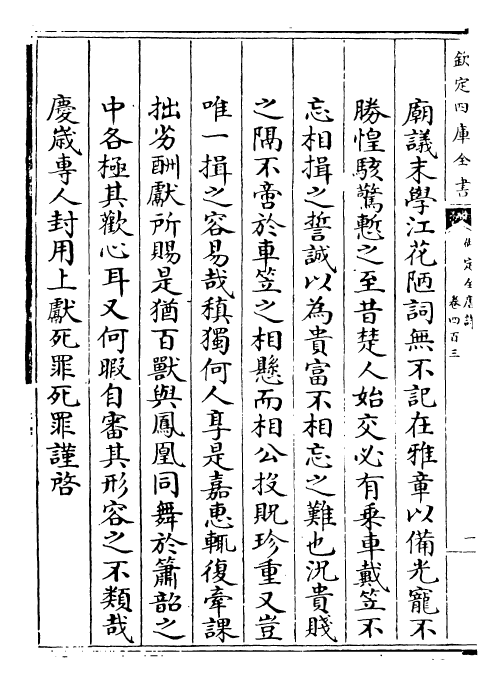 欽定四庫全書
御定全唐詩
卷四百三
廟議末學江花陋詞無不記在雅章以備光寵不
勝惶駭驚慙之至昔楚人始交必有乗車戴笠不
忘相揖之誓誠以為貴富不相忘之難也況貴賤
之隔不啻於車笠之相懸而相公投貺珍重又豈
唯一揖之容易哉稹獨何人享是嘉惠輒復牽課
拙劣酬獻所賜是猶百獸與鳳凰同舞於簫韶之
中各極其歡心耳又何暇自審其形容之不類哉
慶嵗專人封用上獻死罪死罪謹啓